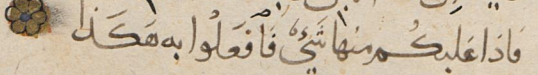 فاذا غلبكم منها شيء فافعلوا به هكذا